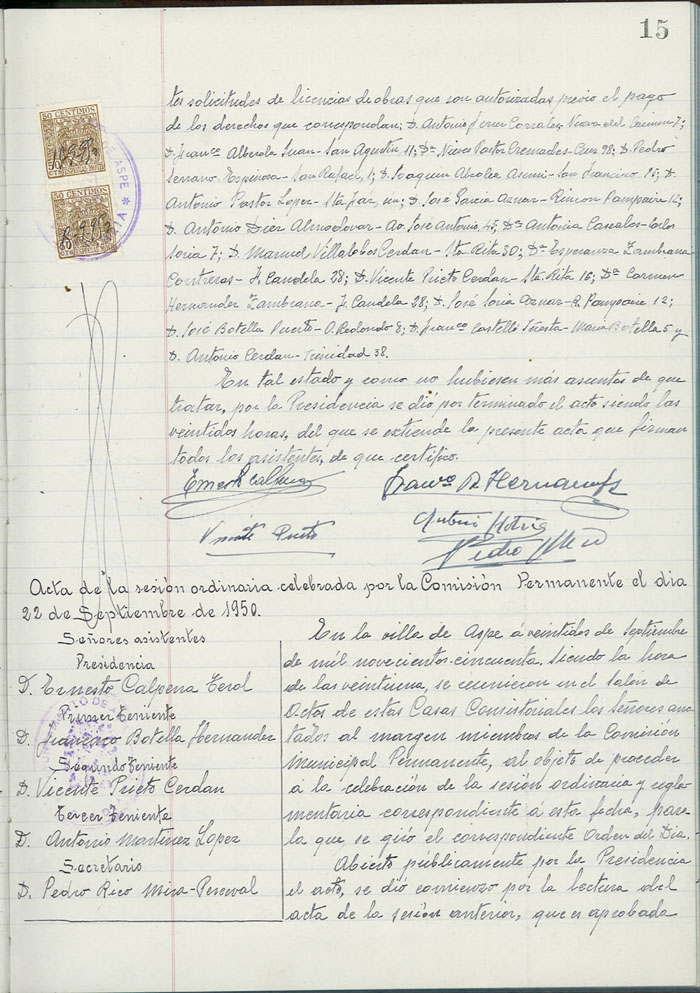 15
50 CENTIMOS
50 CENTIMOS
DE ASPE
tes solicitudes de licencias de obras que son autorizadas previo el pago
de los derechos que correspondan; D. Antonio Ferrer Corrales Virgen del Carmen 7;
D. Franco Alberola Juan - San Agustin 11; Dª Nieves Pastor Cremades - Cruz 28; D. Pedro
Serrano Espinosa - San Rafael, 1; D. Joaquin Alcolea Asensi - San Francisco 15; D.
Antonio Pastor Lopez - Sta far, sn; D. José Garcia Aznar - Rincon Pampaire 12;
D. Antonio Diez Almodovar - Av. José Antonio, 45; Dª Antonia Cascales - Carlos
Soria 7; D. Manuel Villalobos Cerdan - Sta Rita 30; Dª Esperanza Zambrana
Contreras - J. Candela 28; D. Vicente Prieto Cerdan - Sta. Rita 16; Dª Carmen
Hernandez Zambrana - J. Candela 28; D. José Soria Aznar - R. Pampaire 12;
D. José Botella Puerto - O. Redondo 8; D. Franco Castelló Iñesta - Maria Botella 5 y
D. Antonio Cerdan - Trinidad 38.
En tal estado y como no hubiesen más asuntos de que
tratar, por la Presidencia se dió por terminado el acto siendo las
veintidos horas, del que se extiende la presente acta que firman
todos los asistentes, de que certifico.
Ernesto Calpena
Franco B. Hernandez
Vicente Prieto
Antonio
Pedro Rico
Acta de la sesión ordinaria celebrada por la Comisión Permanente el dia
22 de Septiembre de 1950.
Señores asistentes
Presidencia
D. Ernesto Calpena Cerol
Primer Teniente
D. Francisco Botella Hernandez
Segundo Teniente
D. Vicente Prieto Cerdan
Tercer Teniente
D. Antonio Martinez Lopez
Secretario
D. Pedro Rico Mira-Perceval
En la villa de Aspe á veintidos de Septiembre
de mil novecientos cincuenta, siendo la hora
de las veintiuna, se reunieron en el Salón de
Actos de estas Casas Consistoriales los señores ano-
tados al margen miembros de la Comisión
Municipal Permanente, al objeto de proceder
a la celebración de la sesión ordinaria y regla-
mentaria correspondiente á esta fecha, para
la que se giró el correspondiente Orden del Dia.-
Abierto públicamente por la Presidencia
el acto, se dió comienzo por la lectura del
acta de la sesión anterior, que es aprobada